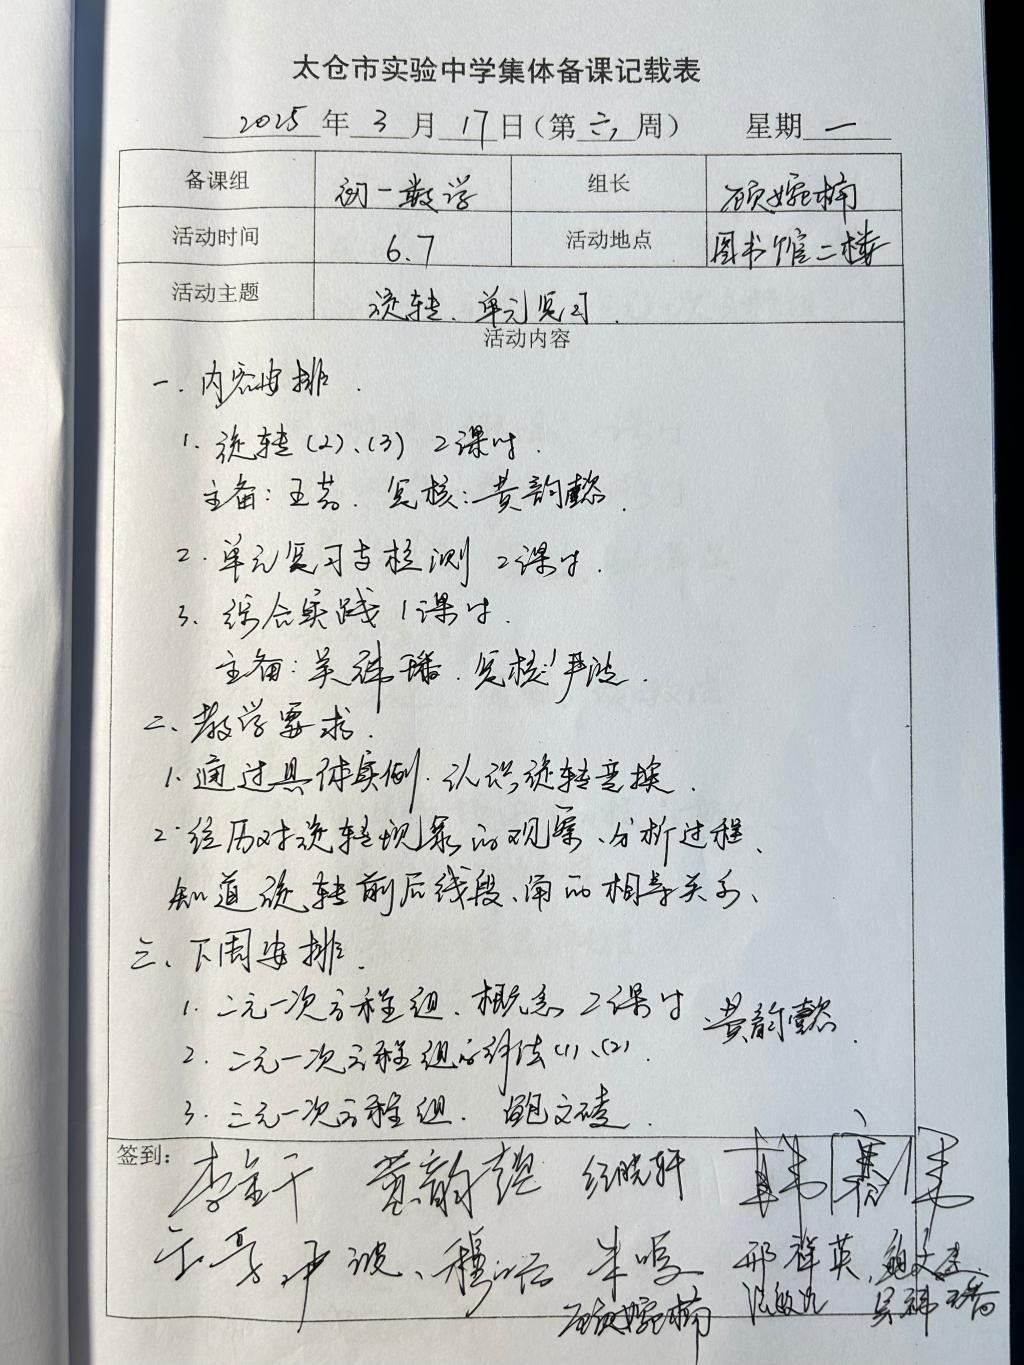 太仓市实验中学集体备课记载表
2025年3月17日(第六周) 星期一
备课组 初一数学 组长 顾婉楠
活动时间 6.7 活动地点 图书馆二楼
活动主题 旋转、单元复习.
活动内容
一.内容安排.
1.旋转(2)、(3) 2课时.
主备:王芳.复核:黄韵懿.
2.单元复习与检测 2课时.
3.综合实践 1课时.
主备:吴祎璠.复核:尹波.
二、教学要求.
1.通过具体实例.认识旋转变换.
2.经历对旋转现象的观察、分析过程、
知道旋转前后线段、角的相等关系、
三、下周安排.
1.二元一次方程组、概念 2课时 黄韵懿.
2.二元一次方程组的解法(1)、(2).
3.三元一次方程组. 鲍文
签到:
李 黄韵懿 经晓轩 韩
尹波、邢祥英、鲍文
顾婉楠 吴祎璠